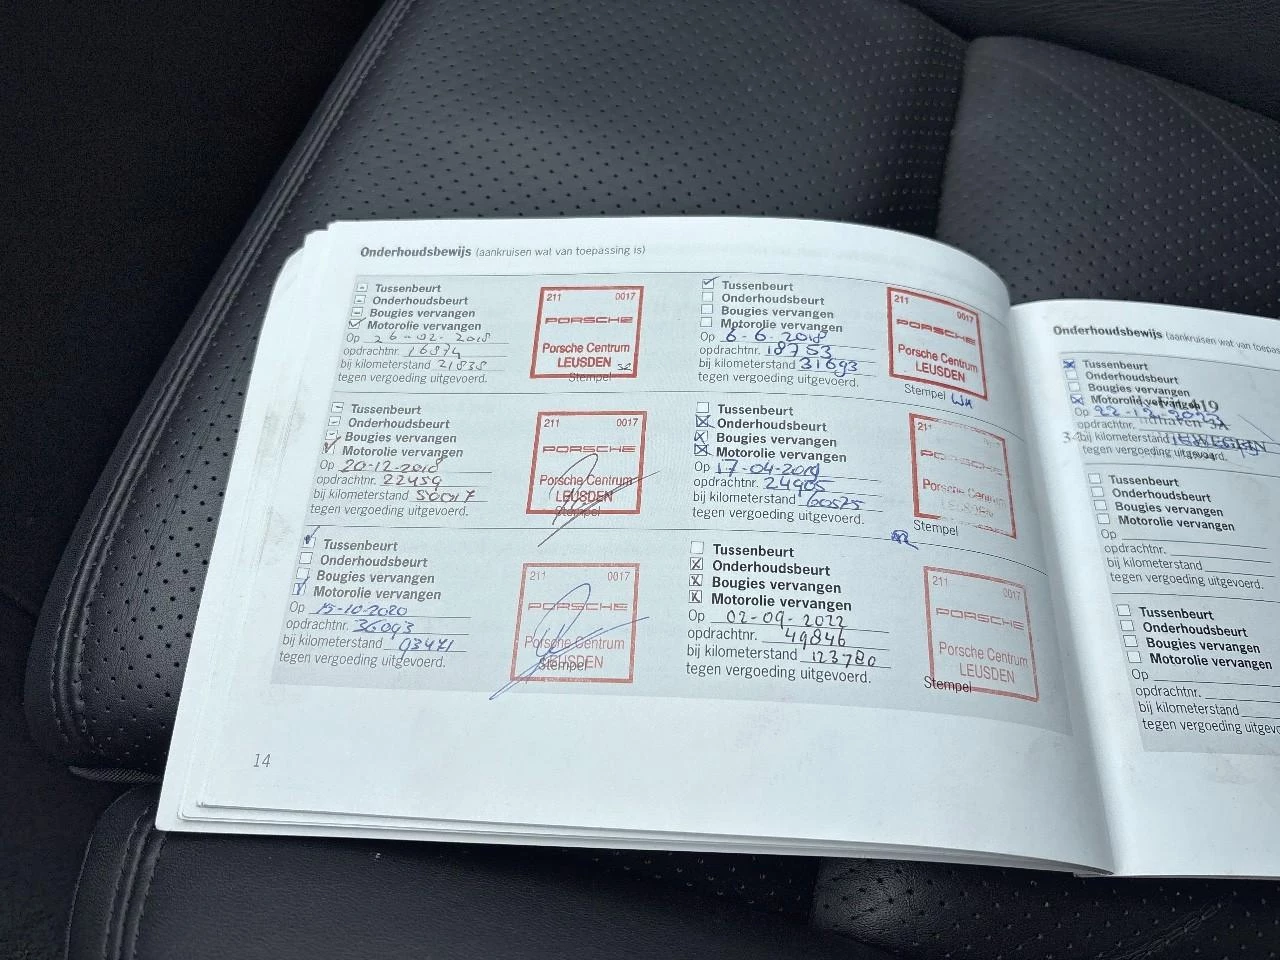 Onderhoudsbewijs (aankruisen wat van toepassing is)
Tussenbeurt
Onderhoudsbeurt
Bougies vervangen
Motorolie vervangen
Op 26-02-2018
opdrachtnr. 16874
bij kilometerstand 21838
tegen vergoeding uitgevoerd.
211 0017
PORSCHE
Porsche Centrum
LEUSDEN
Stempel
Tussenbeurt
Onderhoudsbeurt
Bougies vervangen
Motorolie vervangen
Op 6-6-2018
opdrachtnr. 18753
bij kilometerstand 31693
tegen vergoeding uitgevoerd.
211 0017
PORSCHE
Porsche Centrum
LEUSDEN
Stempel
Tussenbeurt
Onderhoudsbeurt
Bougies vervangen
Motorolie vervangen
Op 20-12-2018
opdrachtnr. 22459
bij kilometerstand 50017
tegen vergoeding uitgevoerd.
211 0017
PORSCHE
Porsche Centrum
LEUSDEN
Stempel
Tussenbeurt
Onderhoudsbeurt
Bougies vervangen
Motorolie vervangen
Op 17-04-2019
opdrachtnr. 24905
bij kilometerstand 60575
tegen vergoeding uitgevoerd.
211
PORSCHE
Porsche Centrum
LEUSDEN
Stempel
Tussenbeurt
Onderhoudsbeurt
Bougies vervangen
Motorolie vervangen
Op 15-10-2020
opdrachtnr. 36093
bij kilometerstand 93471
tegen vergoeding uitgevoerd.
211 0017
PORSCHE
Porsche Centrum
LEUSDEN
Stempel
Tussenbeurt
Onderhoudsbeurt
Bougies vervangen
Motorolie vervangen
Op 02-09-2022
opdrachtnr. 49846
bij kilometerstand 123780
tegen vergoeding uitgevoerd.
211 0017
PORSCHE
Porsche Centrum
LEUSDEN
Stempel
14
Onderhoudsbewijs (aankruisen wat van toepas
Tussenbeurt
Onderhoudsbeurt
Bougies vervangen
Motorolie vervangen
Op 22-12-2023
opdrachtnr.
bij kilometerstand
tegen vergoeding uitgevoerd.
Tussenbeurt
Onderhoudsbeurt
Bougies vervangen
Motorolie vervangen
Op
opdrachtnr.
bij kilometerstand
tegen vergoeding uitgevoerd.
Tussenbeurt
Onderhoudsbeurt
Bougies vervangen
Motorolie vervangen
Op
opdrachtnr.
bij kilometerstand
tegen vergoeding uitgevoe